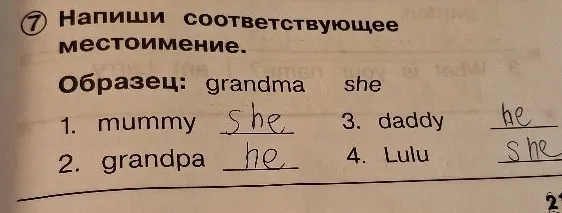 7 Напиши соответствующее
местоимение.
Образец: grandma she
1. mummy she 3. daddy he
2. grandpa he 4. Lulu she